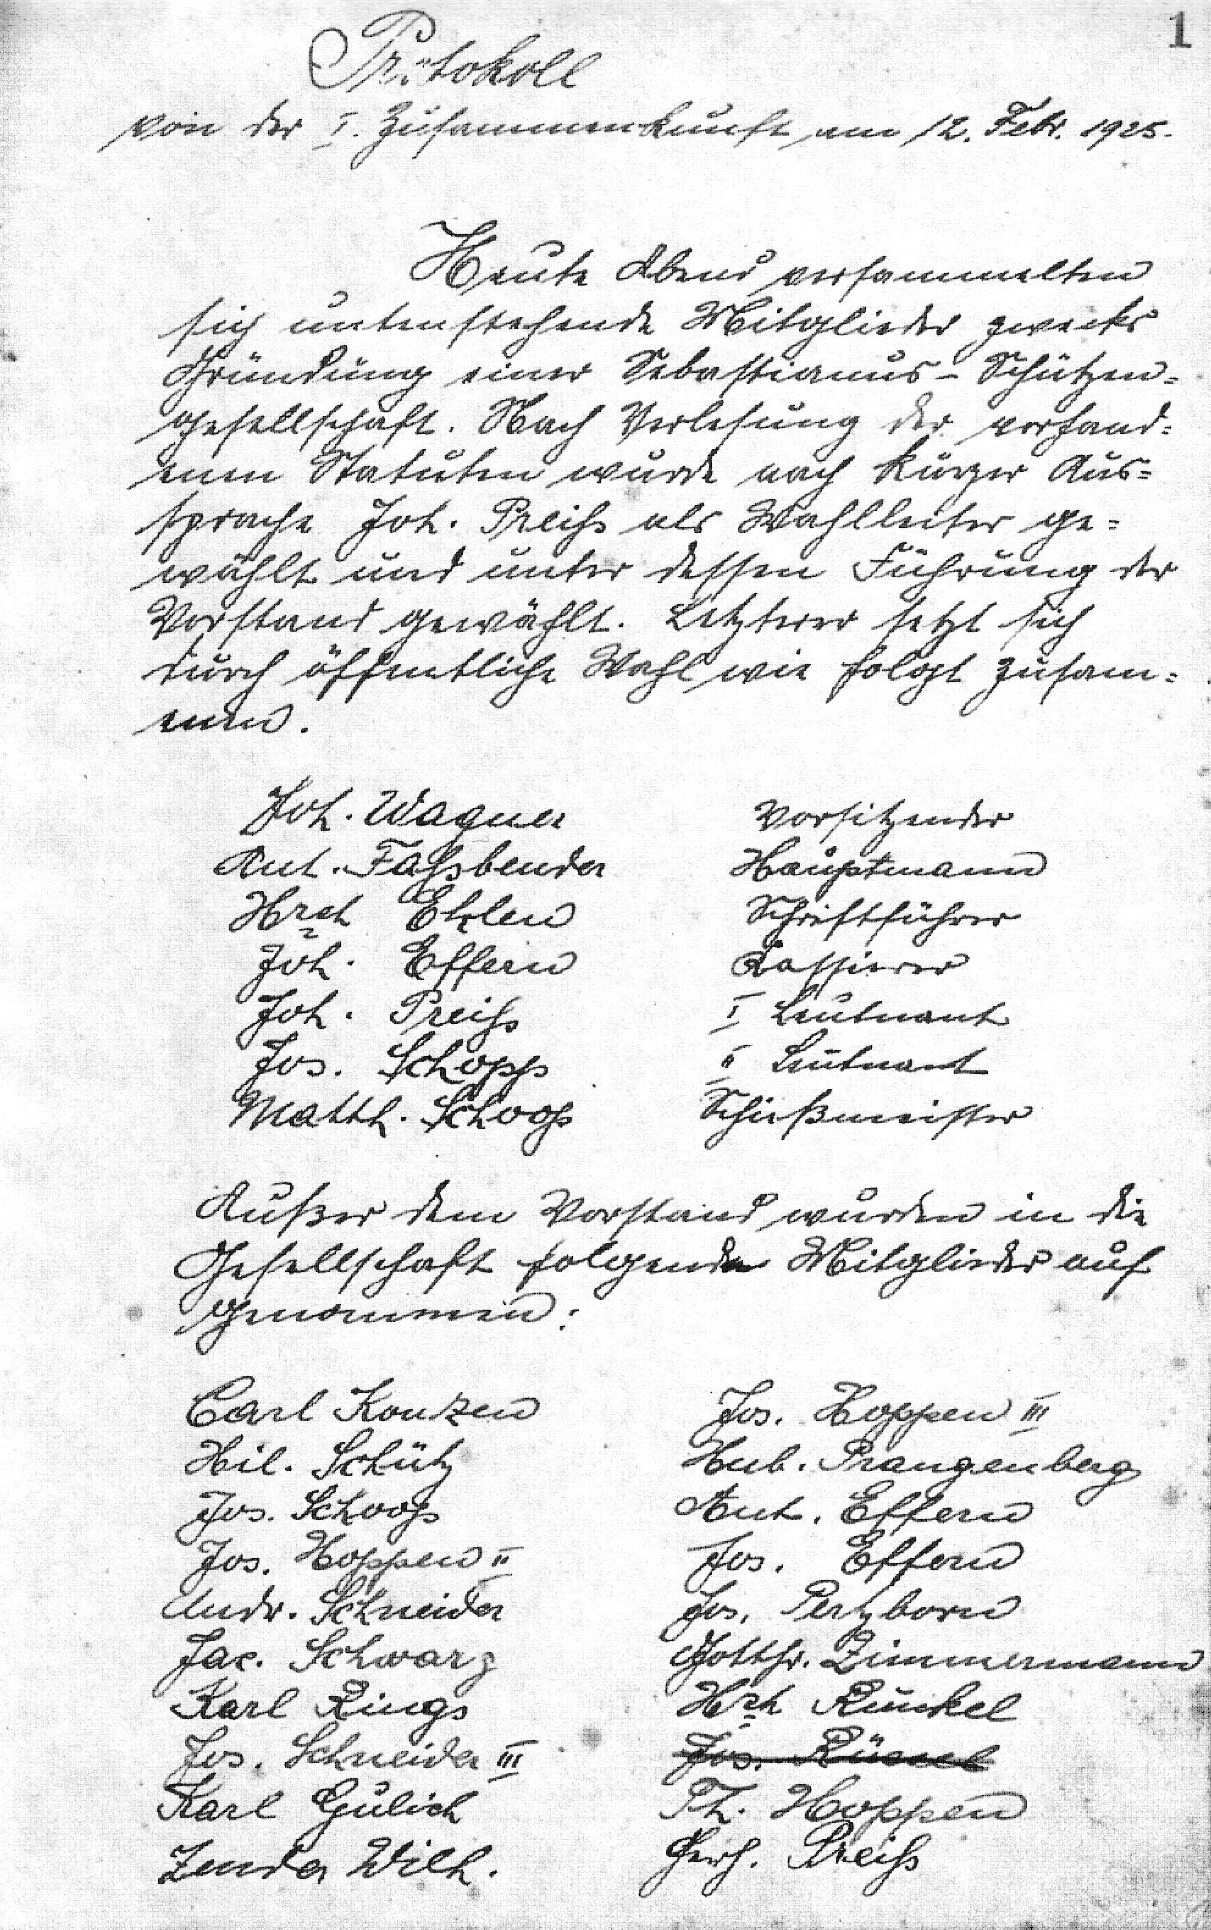 1
Protokoll
von der I. Zusammenkunft am 12. Febr. 1925.
Heute Abend versammelten
sich untenstehende Mitglieder zwecks
Gründung einer Sebastianus-Schützen=
gesellschaft. Nach Verlesung der vorhand=
enen Statuten wurde nach kurzer Aus=
sprache Joh. Preiß als Wahlleiter ge=
wählt und unter dessen Führung der
Vorstand gewählt. Letzterer setzt sich
durch öffentliche Wahl wie folgt zusam=
men.
Joh. Wagner Vorsitzender
Ant. Faßbender Hauptmann
Hrch Ehlen Schriftführer
Joh. Effern Kassierer
Joh. Preiß I Leutnant
Jos. Schopp II Leutnant
Matth. Schoop Schießmeister
Außer dem Vorstand wurden in die
Gesellschaft folgende Mitglieder auf
genommen:
Carl Konzen Jos. Hoppen III
Hil. Schütz Hub. Prangenberg
Jos. Schoop Ant. Effern
Jos. Hoppen II Jos. Effern
Andr. Schneider Jos. Pertzborn
Jac. Schwarz Gottfr. Zimmermann
Karl Rings Hrh Rünkel
Jos. Schneider III Jos.
Karl Gülich Th. Hoppen
Zender Wilh. Gerh. Preiß